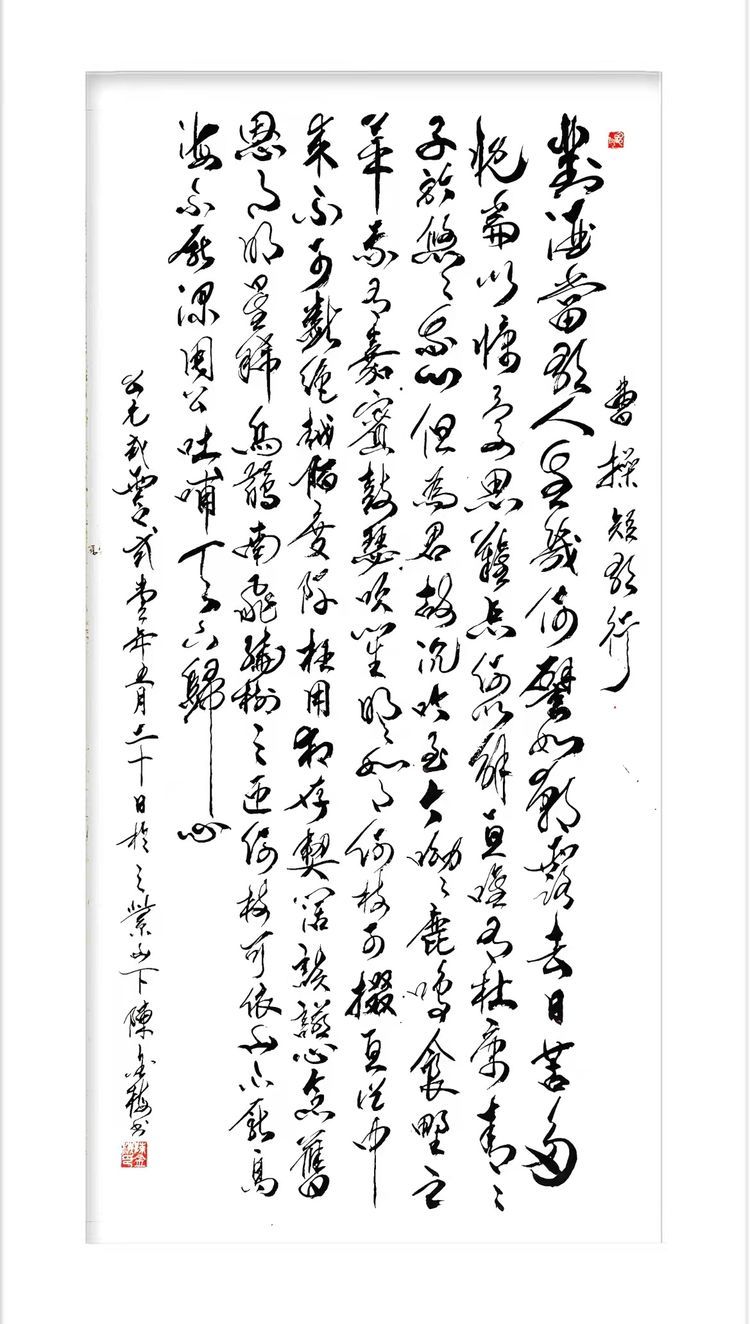 曹操短歌行
對酒當歌人生幾何譬如朝露去日苦多
慨當以慷憂思難忘何以解憂唯有杜康青々
子衿悠々我心但為君故沉吟至今呦々鹿鳴食野之
苹我有嘉賓鼓瑟吹笙明々如月何時可掇憂從中
來不可斷絕越陌度阡枉用相存契闊談讌心念舊
恩月明星稀烏鵲南飛繞樹三匝何枝可依山不厭高
海不厭深周公吐哺天下歸心
公元貳零貳零年五月二十日於紫山下陳金梅書